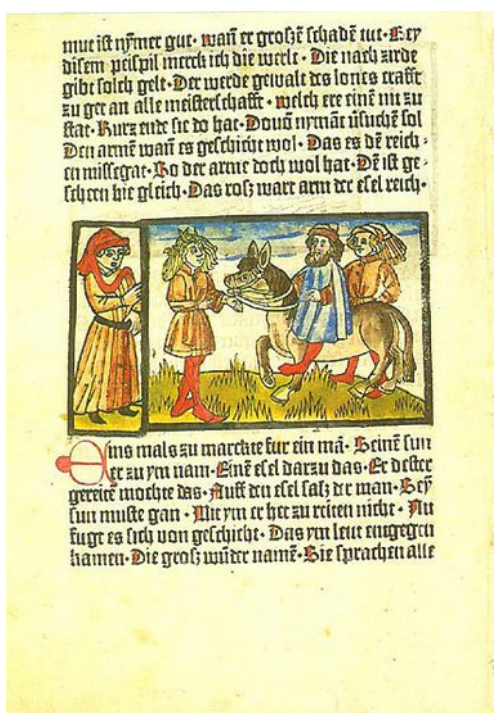 mut ist nȳmer gut· wañ er groszē schadē tut· Bey
disem peispil merck ich die werlt· Die nach zirde
gibt solch gelt· Der werde gewalt des lones crafft
zu get an alle meisterschafft· welch ere einē mī zu
stat· Kurz ende sie do hat· Douō nymāt ūsuchē sol
Den armē wañ es geschicht wol· Das es dē reich-
en missegat· So der arme doch wol hat· Dē ist ge-
scheen hie gleich· Das rosz wart arm der esel reich·
Eins mals zu marckte fur ein mā· Seinē sun
er zu ym nam· Einē esel darzu das· Er dester
gereite mochte das· Auff den esel sasz der man· Sey
sun muste gan· Mit ym er het zu reiten nicht· Nu
fuge es sich von geschicht· Das ym leut entgegen
kamen· Die grosz wūder namē· Sie sprachen alle